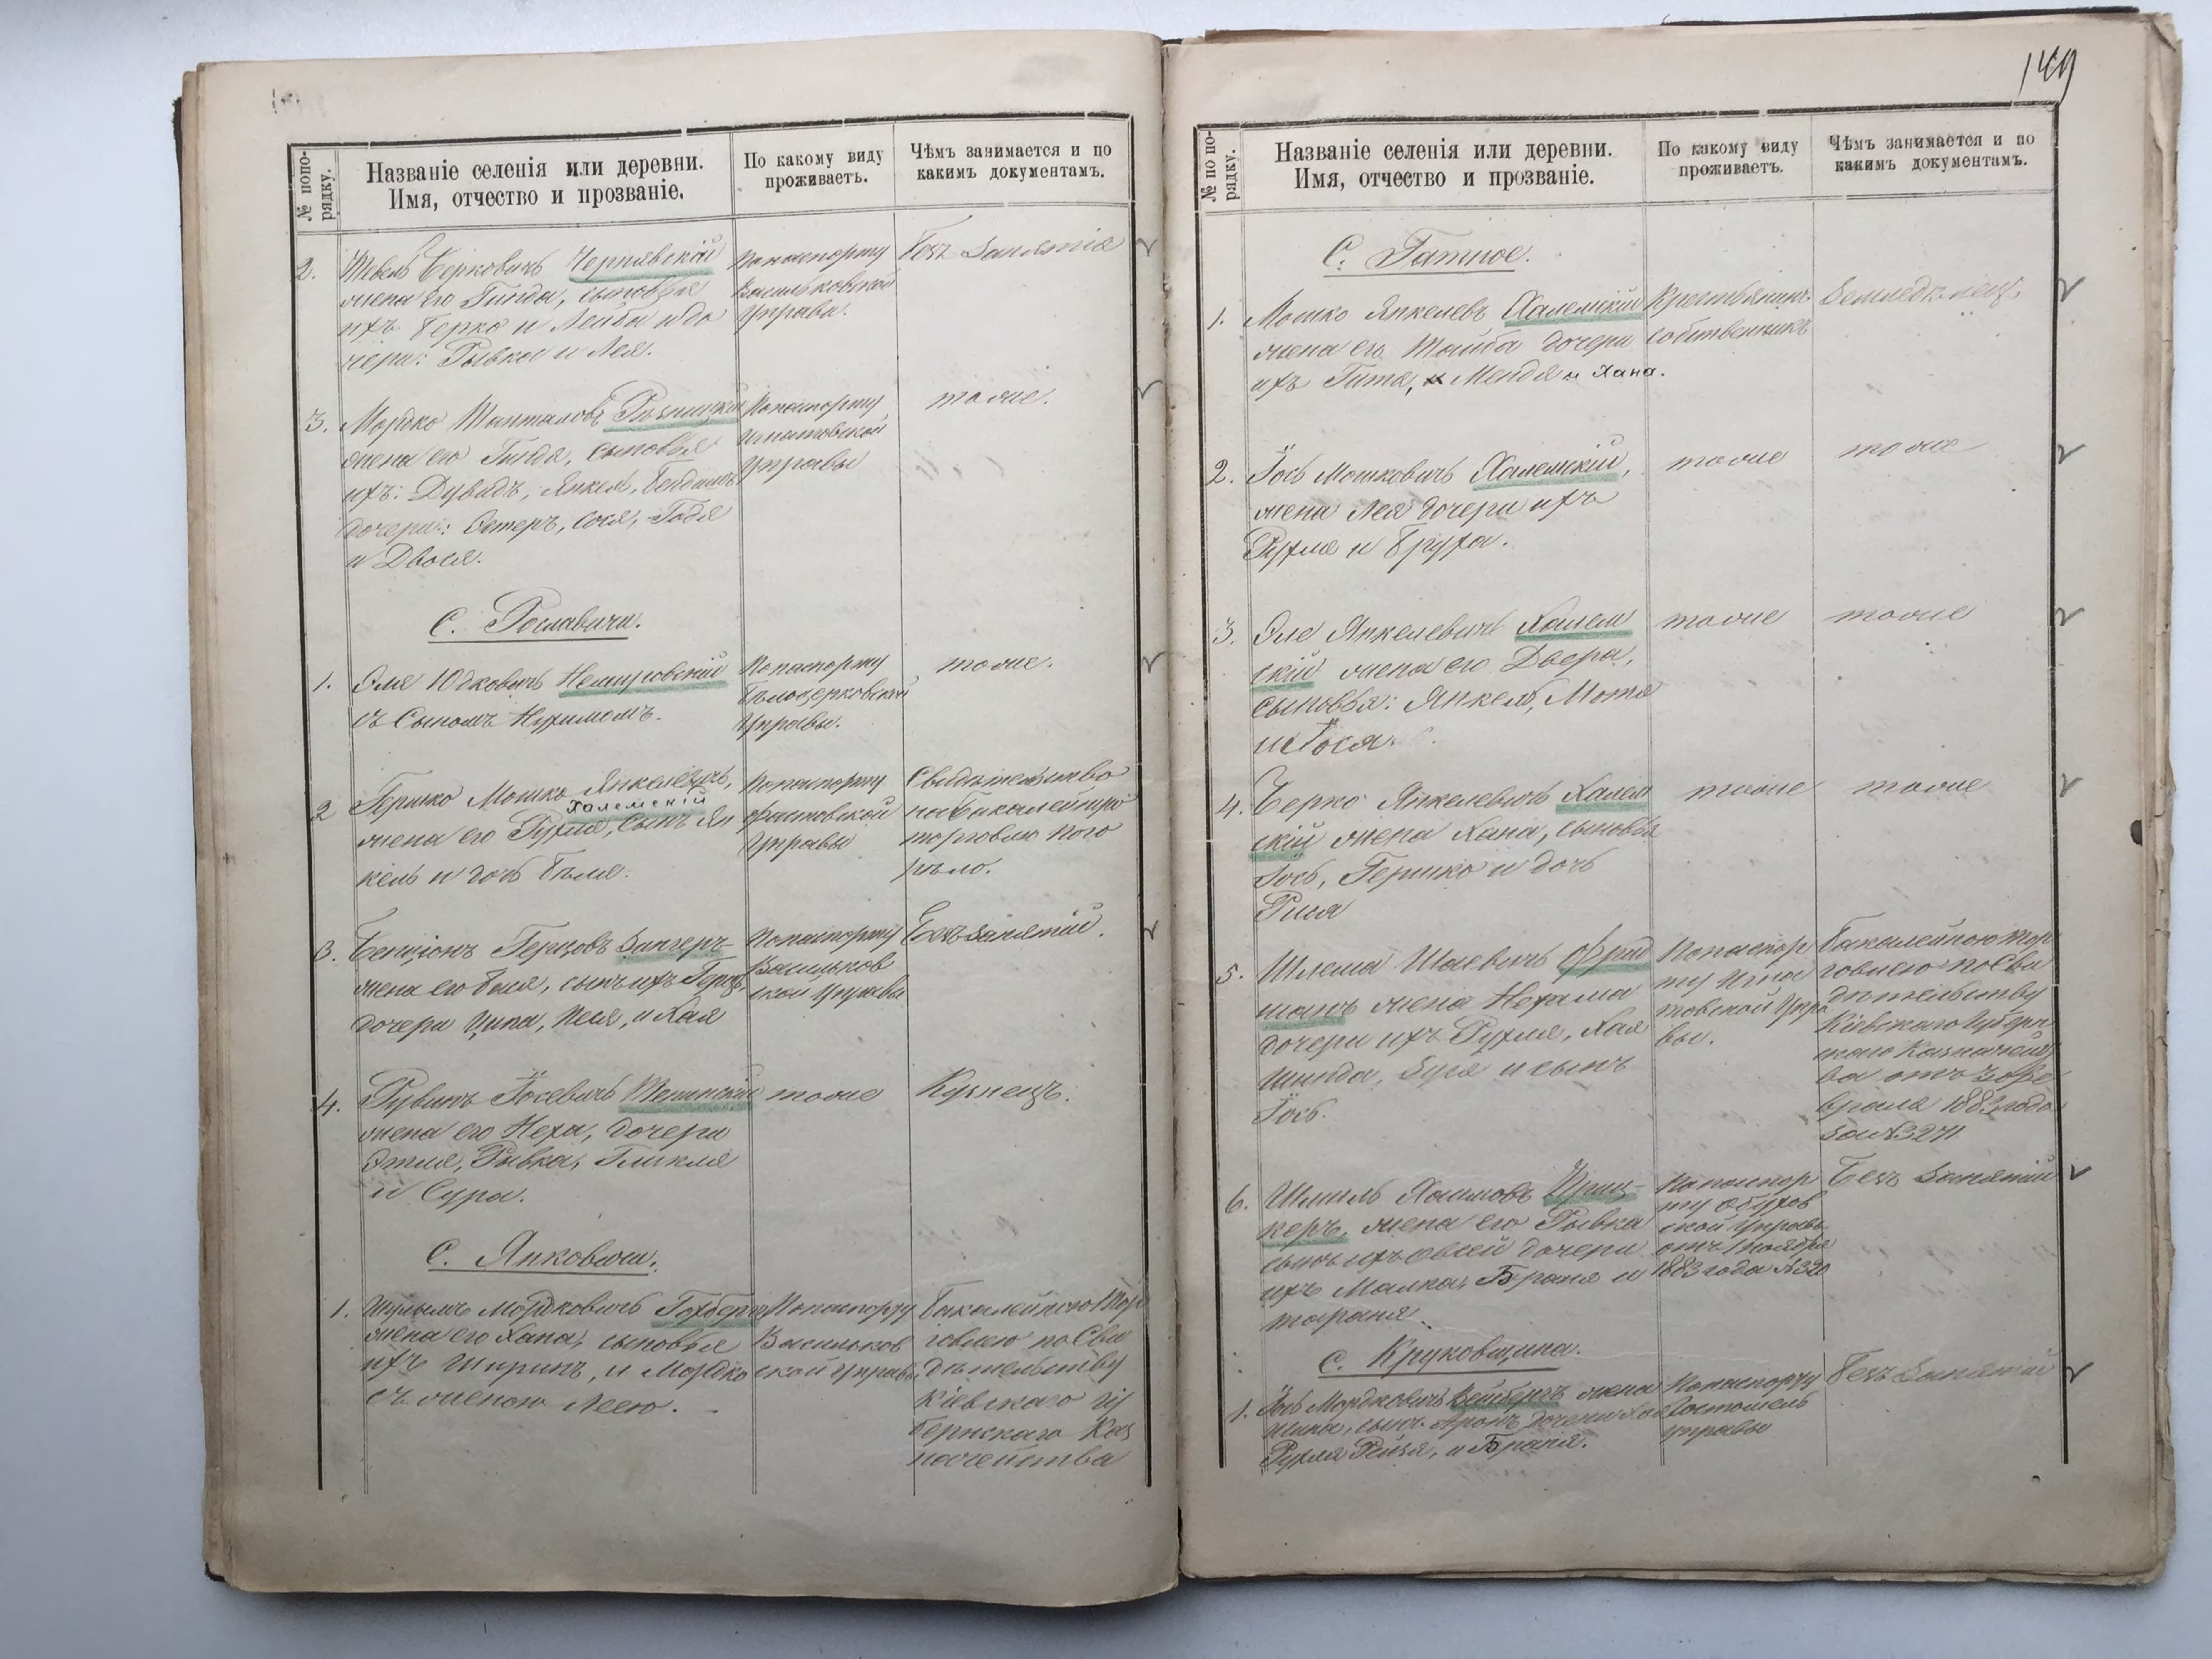 № попо-
рядку.
Названіе селенія или деревни.
Имя, отчество и прозваніе.
По какому виду
проживаетъ.
Чѣмъ занимается и по
какимъ документамъ.
2. Шевель Берковичъ Чернявскій
жена его Гинда, сыновья
ихъ Берко и Лейба и до
чери: Рывка и Лея.
Попаспорту
Васильковской
Управы.
Безъ занятія
3. Мордко Танталовъ Рѣзницкій
жена его Гинда, сыновья
ихъ: Дувидъ, Янкель,
дочери: Эстеръ, Сося, Годя
и Двося.
Попаспорту
Игнатовской
Управы
тоже.
С. Рославичи.
1. Эля Юдковичъ Немировскій
съ Сыномъ Нухимомъ.
Попаспорту
Бѣлоцерковской
Управы.
тоже.
2 Гершко Мошко Янкелевичъ,
Халемскій
жена его Рухля, сынъ Ян
кель и дочь Бѣля.
Попаспорту
Фастовской
Управы
Свидѣтельство
на Бакалейную
торговлю пого
рѣло.
3. Бенціонъ Герцовъ Зингеръ
жена его Бася, сынъ ихъ Герцъ,
дочери Ципа, Песя, и Хая
Попаспорту
Васильков
ской Управы
Безъ занятій.
4. Рувинъ Іосевичъ
жена его Неха, дочери
Этля, Рывка, Гликля
и Сура.
тоже
Кузнецъ.
С. Янковичи.
1. Шулымъ Мордковичъ Гохберг
жена его Хана, сыновья
ихъ Ширинъ, и Мордко
съ женою Леею.
Попаспорту
Васильков
ской Управы
Бакалейною Тор
говлею по Сви
дѣтельству
Кіевскаго Гу
бернскаго Каз
начейства
149
№ по по-
рядку.
Названіе селенія или деревни.
Имя, отчество и прозваніе.
По какому виду
проживаетъ.
Чѣмъ занимается и по
какимъ документамъ.
С. Гатное.
1. Мошко Янкелевъ Халемскій
жена его Тайба дочери
ихъ Гитя, Мендя и Хана.
Крестьянинъ
собственникъ
Земледѣлецъ.
2. Іось Мошковичъ Халемскій,
жена Лея дочери ихъ
Рухля и Бруха.
тоже
тоже
3. Эле Янкелевичъ Халем
скій жена его Двера,
сыновья: Янкель, Мотя
и Іося.
тоже
тоже
4. Берко Янкелевичъ Халем
скій жена Хана, сыновья
Іось, Гершко и дочь
Рися
тоже
тоже
5. Шлема Шаевичъ Фрид
манъ жена Нехама
дочери ихъ Рухля, Хая
Шинда, Зуся и сынъ
Іось.
Попаспор
ту Игна
товской Упра
вы.
Бакалейною тор
говлею по Сви
дѣтельству
Кіевскаго Губерн
скаго Казначейст
ва отъ Фе
враля 1883 года
за № 3271
6. Шмиль Хаимовъ Цуц-
керъ, жена его Рывка
сынъ ихъ Овсей дочери
ихъ Малка, Браня и
тараня.
Попаспор
ту Обухов
ской Управы
отъ 1 ноября
1883 года № 320
Безъ занятій
с. Круковщина.
1. Іось Мордковичъ Вейбергъ жена
Ципа, сынъ Аронъ дочери Хая
Рухля Рейзя, и Браня.
Попаспорту
Гостомель
управы
Безъ занятій